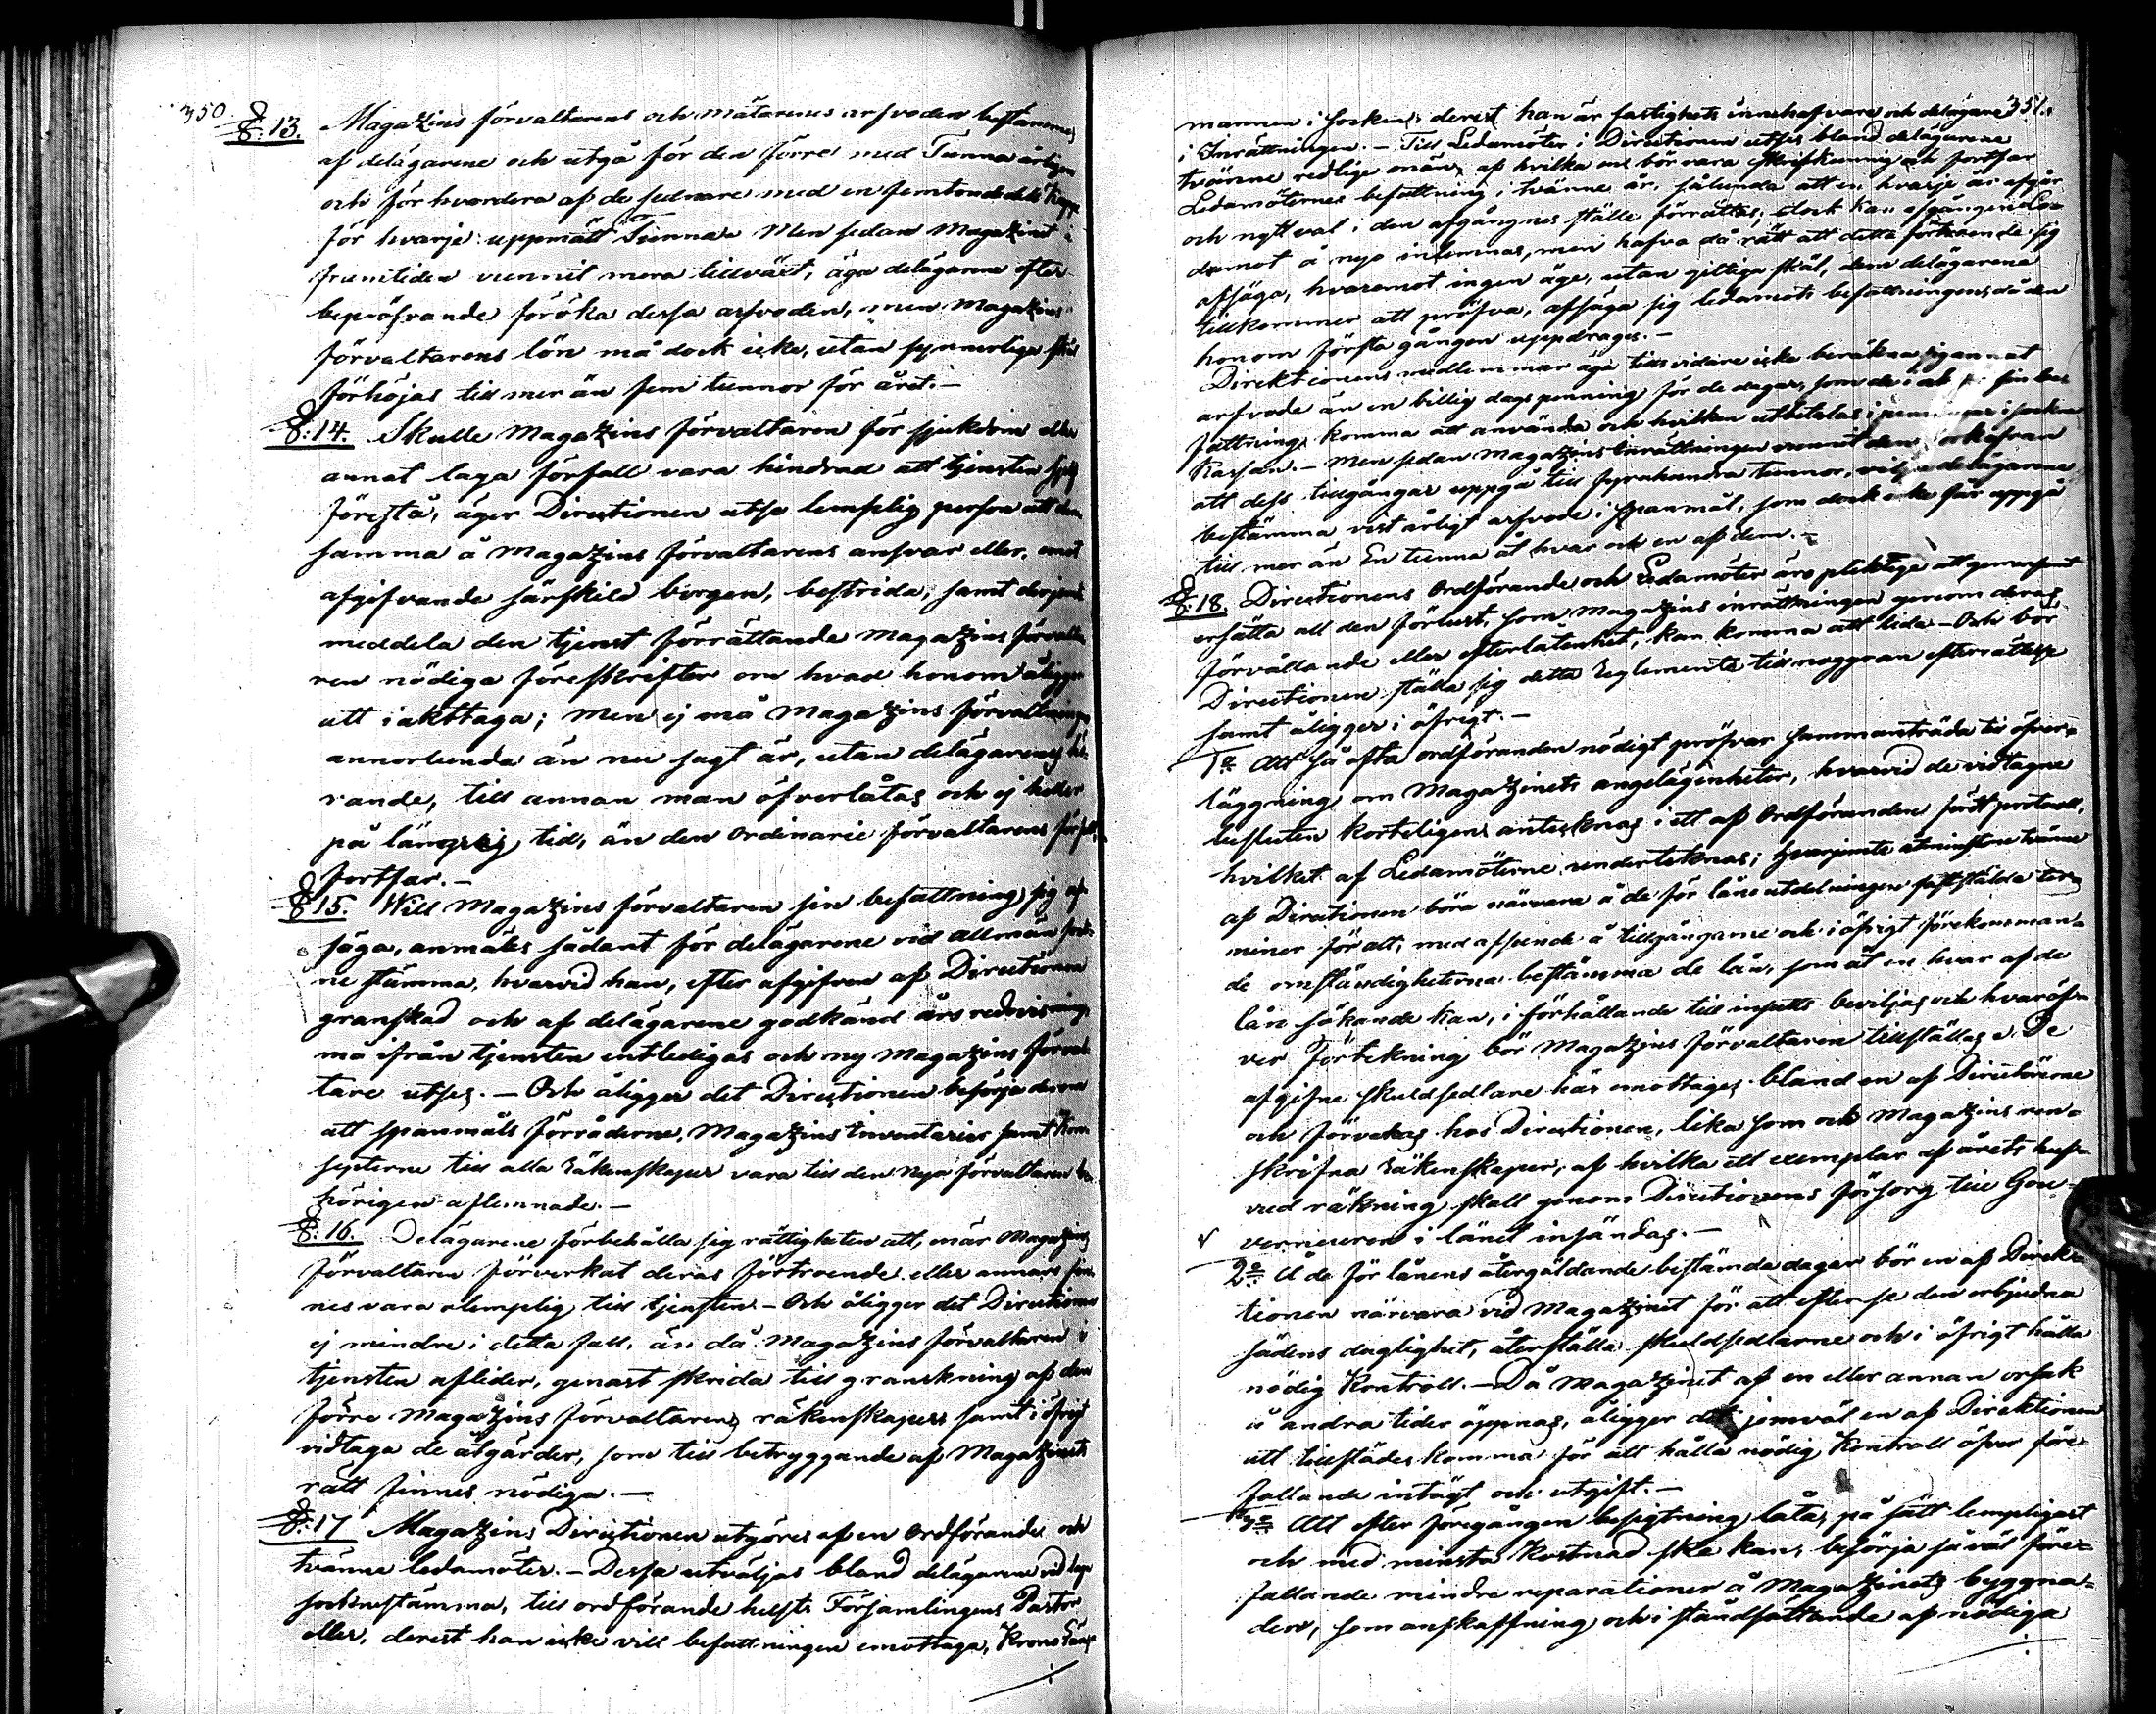 350.
§: 13. Magazins förvaltarens och mätarenes arfvoden bestämmes
af delägarene och utgå för den förre med Tunna årligen
och för hvardera af de sednare med en femtondedels Kappe
för hvarje uppmätt Tunna. Men sedan Magazinet i
framtiden vunnit mera tillväxt, äga delägarene efter
bepröfvande föröka dessa arfvoden, men Magazins
förvaltarens lön må dock icke, utan synnerliga skäl
förhöjas till mer än fem tunnor för året. -
§: 14. Skulle Magazins förvaltaren för sjukdom eller
annat laga förfall vara hindrad att tjensten sjelf
förestå, äger Directionen utse lemplig person att den
samma å Magazins förvaltarens ansvar eller, emot
afgifvande särskild borgen, bestrida, samt derjemte
meddela den tjenst förrättande Magazins förvalta
ren nödiga föreskrifter om hvad honom åligger
att iakttaga; Men ej må Magazins förvaltningen
annorlunda än nu sagt är, utan delägarenes
rande, till annan man öfverlåtas och ej heller
på längre tid, än den Ordinarie förvaltarens förfall
fortfar. -
§ 15. Will Magazins förvaltaren sin befattning sig af
säga, anmäles sådant för delägarene vid allmän sock
ne stämma, hvarvid han, efter afgifven af Directionen
granskad och af delägarene godkänd årsredovisning,
må ifrån tjensten entledigas och ny Magazins förval
tare utses. - Och åligger det Directionen besörja derom
att spanmåls förråderne, Magazins Inventarier samt Kon
septerne till alla Räkenskaper vara till den nya förvaltaren be
hörigen aflemnade. -
§: 16. Delägarene förbehålla sig rättigheten att, när Magazins
förvaltaren förverkat deras förtroende eller annars fin
nes vara olemplig till tjensten - Och åligger det Directionen
ej mindre i detta fall, än då Magazins förvaltaren i
tjensten aflider, genast skrida till granskning af den
förre Magazins förvaltarens räkenskaper samt i öfrigt
vidtaga de åtgärder, som till betryggande af Magazinets
rätt finnes nödiga. -
§: 17 Magazins Directionen utgöres af en Ordförande och
tvänne ledamöter. - Dessa utväljas bland delägarene vid laga
sockenestämma, till ordförande helst Församlingens Pastor
eller, derest han icke vill befattningen emottaga, Krono Läns
351.
mannen i socken, derest han är fastighets innehafvare och delägare
i Inrättningen. - Till Ledamöter i Directionen utses bland delägarene
tvänne redlige män, af hvilka en bör vara skrifkunnig och fortfar
Ledamöternes befattning i tvänne år, sålunda att en hvarje år afgår
och nytt val i den afgångnes ställe förrättas; dock kan afgången Le-
damot å nyo inlemnas, men hafva då rätt att detta förtroende sig
afsäga, hvaremot ingen äge, utan giltiga skäl, dem delägarene
tillkommer att pröfva, afsäga sig ledamots befattningen, då den
honom första gången uppdrages. -
Direktionens medlemmar äga tillsvidare icke beräkna sig annat
arfvode än en billig dagspenning för de dagar, som de i sin be
fattning komma att använda och hvilken utbetalas i penningar i socken
Kassan. - Men sedan Magazins Inrättningen vunnit den
att dess tillgångar uppgå till fyrahundra tunnor, delägarene
bestämma visst årligt arfvode i spanmål, som dock icke får uppgå
till mer än En tunna åt hvar och en af dem. -
§: 18. Directionens Ordförande och Ledamöter äro pliktige att gemensamt
ersätta all den förlust, som Magazins inrättningen genom deras
förvållande eller efterlåtenhet, kan komma att lida - Och bör
Directionen ställa sig detta Reglemente till noggran efterrättelse
samt åligger i öfrigt. -
1o Att så ofta ordföranden nödigt pröfvar sammanträda till öfver-
läggning om Magazinets angelägenheter, hvarvid de vidtagne
besluten korteligen antecknas i ett af Ordföranden fördt protocoll,
hvilket af Ledamöterne underteknas; hvarjemte åtminstone tvänne
af Directionen böra närvara å de för låneutdelningen fastställde ter-
miner för att, med afseende å tillgångarne och i öfrigt förekomman-
de omständigheterna bestämma de lån, som åt en hvar af de
lån sökande kan, i förhållande till insatts beviljas och hvaröf-
ver Förtekning bör Magazins förvaltaren tillställas. De
afgifne skuldsedlare här emottages bland en af Directörerne
och förvaras hos Directionen, lika som och Magazins ren-
skrifna Räkenskaper, af hvilka ett exemplar af årets huf-
vud räkning skall genom Directionens försorg till Gou-
verneuren i länet insändas. -
2o Å de för lånens återgäldande bestämda dagar bör en af Direk-
tionen närvara vid Magazinet för att efterse den erbjudna
sädens daglighet, återställa skuldsedlarne och i öfrigt hålla
nödig Kontroll. - Då Magazinet af en eller annan orsak
å andra tider öppnas, åligger det jemväl en af Direktionen
att tillstädes komma för att hålla nödig Kontroll öfver före-
fallande intägt och utgift. -
3o Att efter föregången besigtning låta, på sätt lempligast
och med minsta Kostnad ske kan, besörja så väl före-
fallande mindre reparationer å Magazinets byggna-
der, som anskaffning och i ståndsättande af nödiga